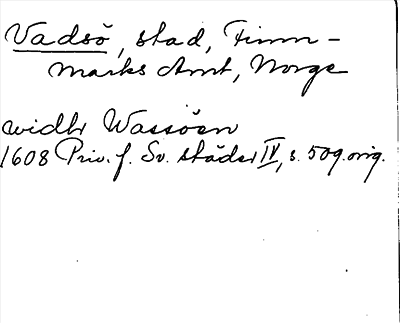 Vadsö, stad, Finn-
marks Amt, Norge
widh Wassöen
1608 Priv. f. Sv. städer IV, s. 509. orig.